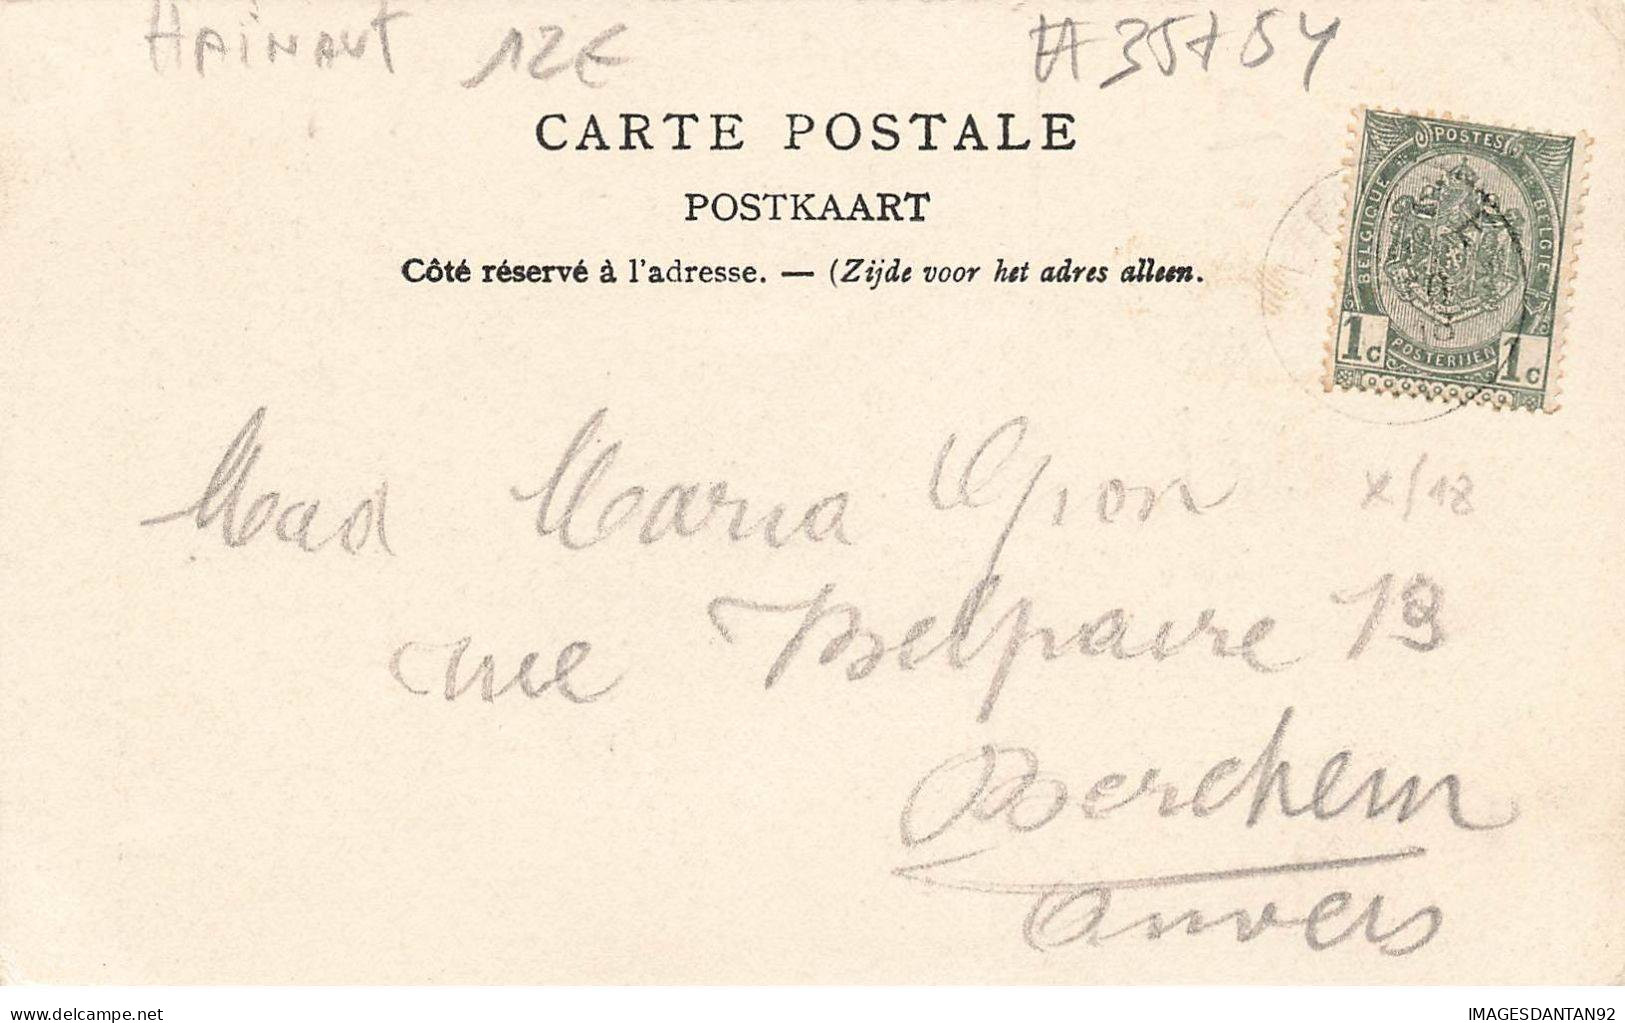 HAINAUT 12€ #35754
CARTE POSTALE
POSTKAART
Côté réservé à l'adresse. — (Zijde voor het adres alleen.
POSTES
BELGIQUE BELGIË
1c POSTERIJEN 1c
Mad Maria Gion X/18
rue Belpaire 19
Berchem
Anvers
delcampe.net
IMAGESDANTAN92